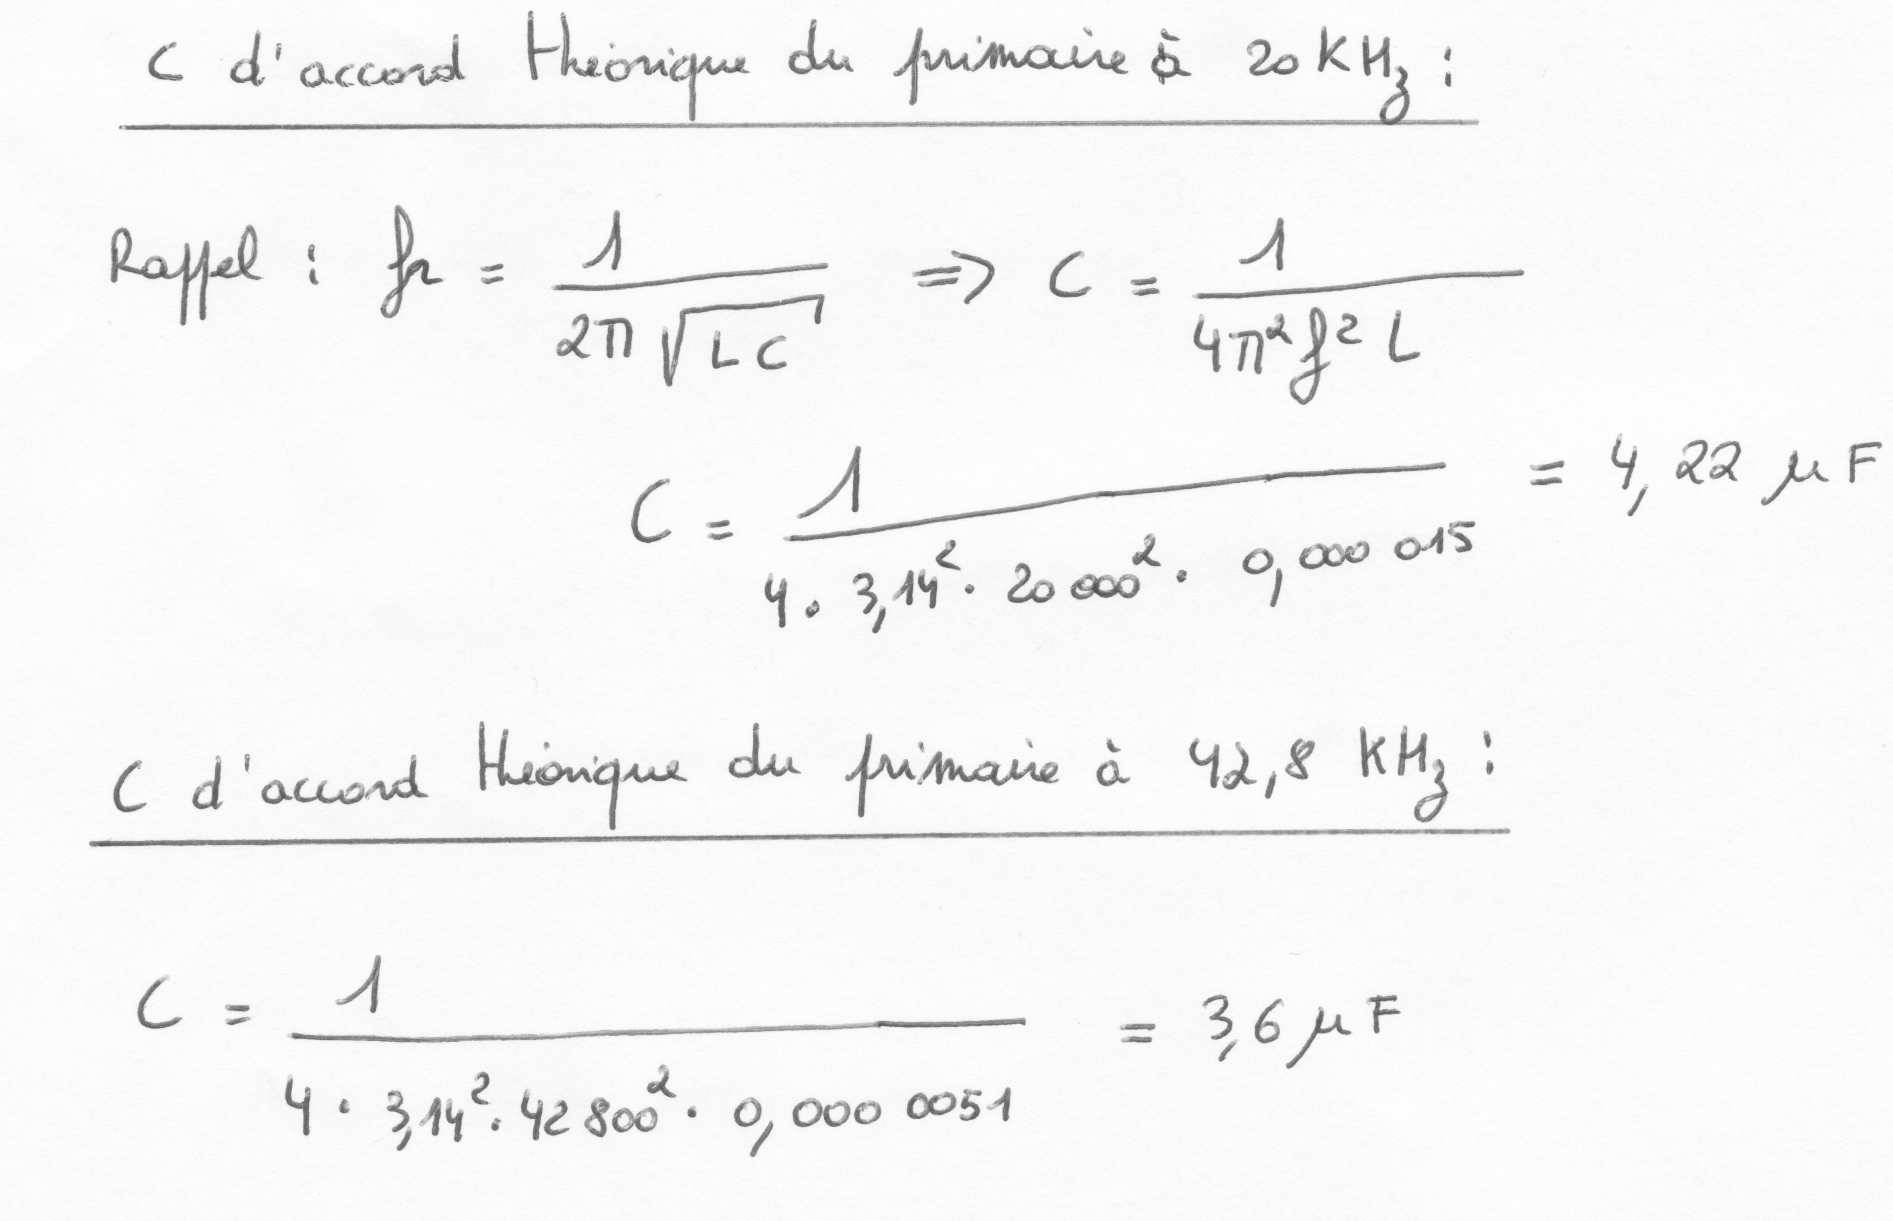 C d'accord théorique du primaire à 20 KHz :
Rappel : fr = 1 / (2π √(LC)) => C = 1 / (4π² f² L)
C = 1 / (4 . 3,14² . 20 000² . 0,000 015) = 4,22 µF
C d'accord théorique du primaire à 42,8 KHz :
C = 1 / (4 . 3,14² . 42 800² . 0,000 0051) = 3,6 µF